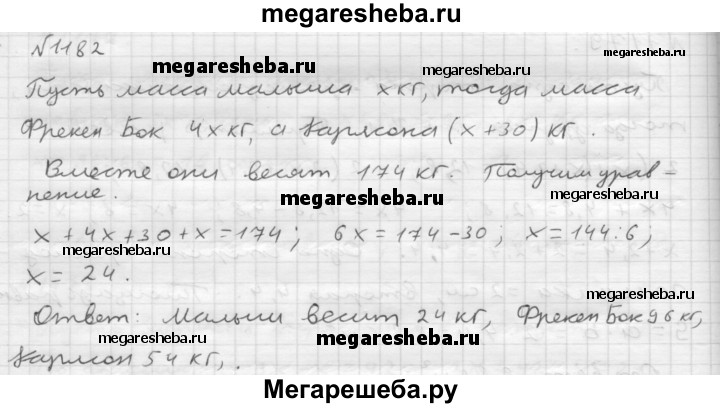 megaresheba.ru
№1182
megaresheba.ru megaresheba.ru
Пусть масса малыша x кг, тогда масса
Фрекен Бок 4x кг, а Карлсона (x+30) кг.
Вместе они весят 174 кг. Получим урав-
нение.
megaresheba.ru
x + 4x + 30 + x = 174; 6x = 174 - 30; x = 144 : 6;
megaresheba.ru
x = 24.
megaresheba.ru
Ответ: Малыш весит 24 кг, Фрекен Бок 96 кг,
megaresheba.ru
Карлсон 54 кг,.
Мегарешеба.ру